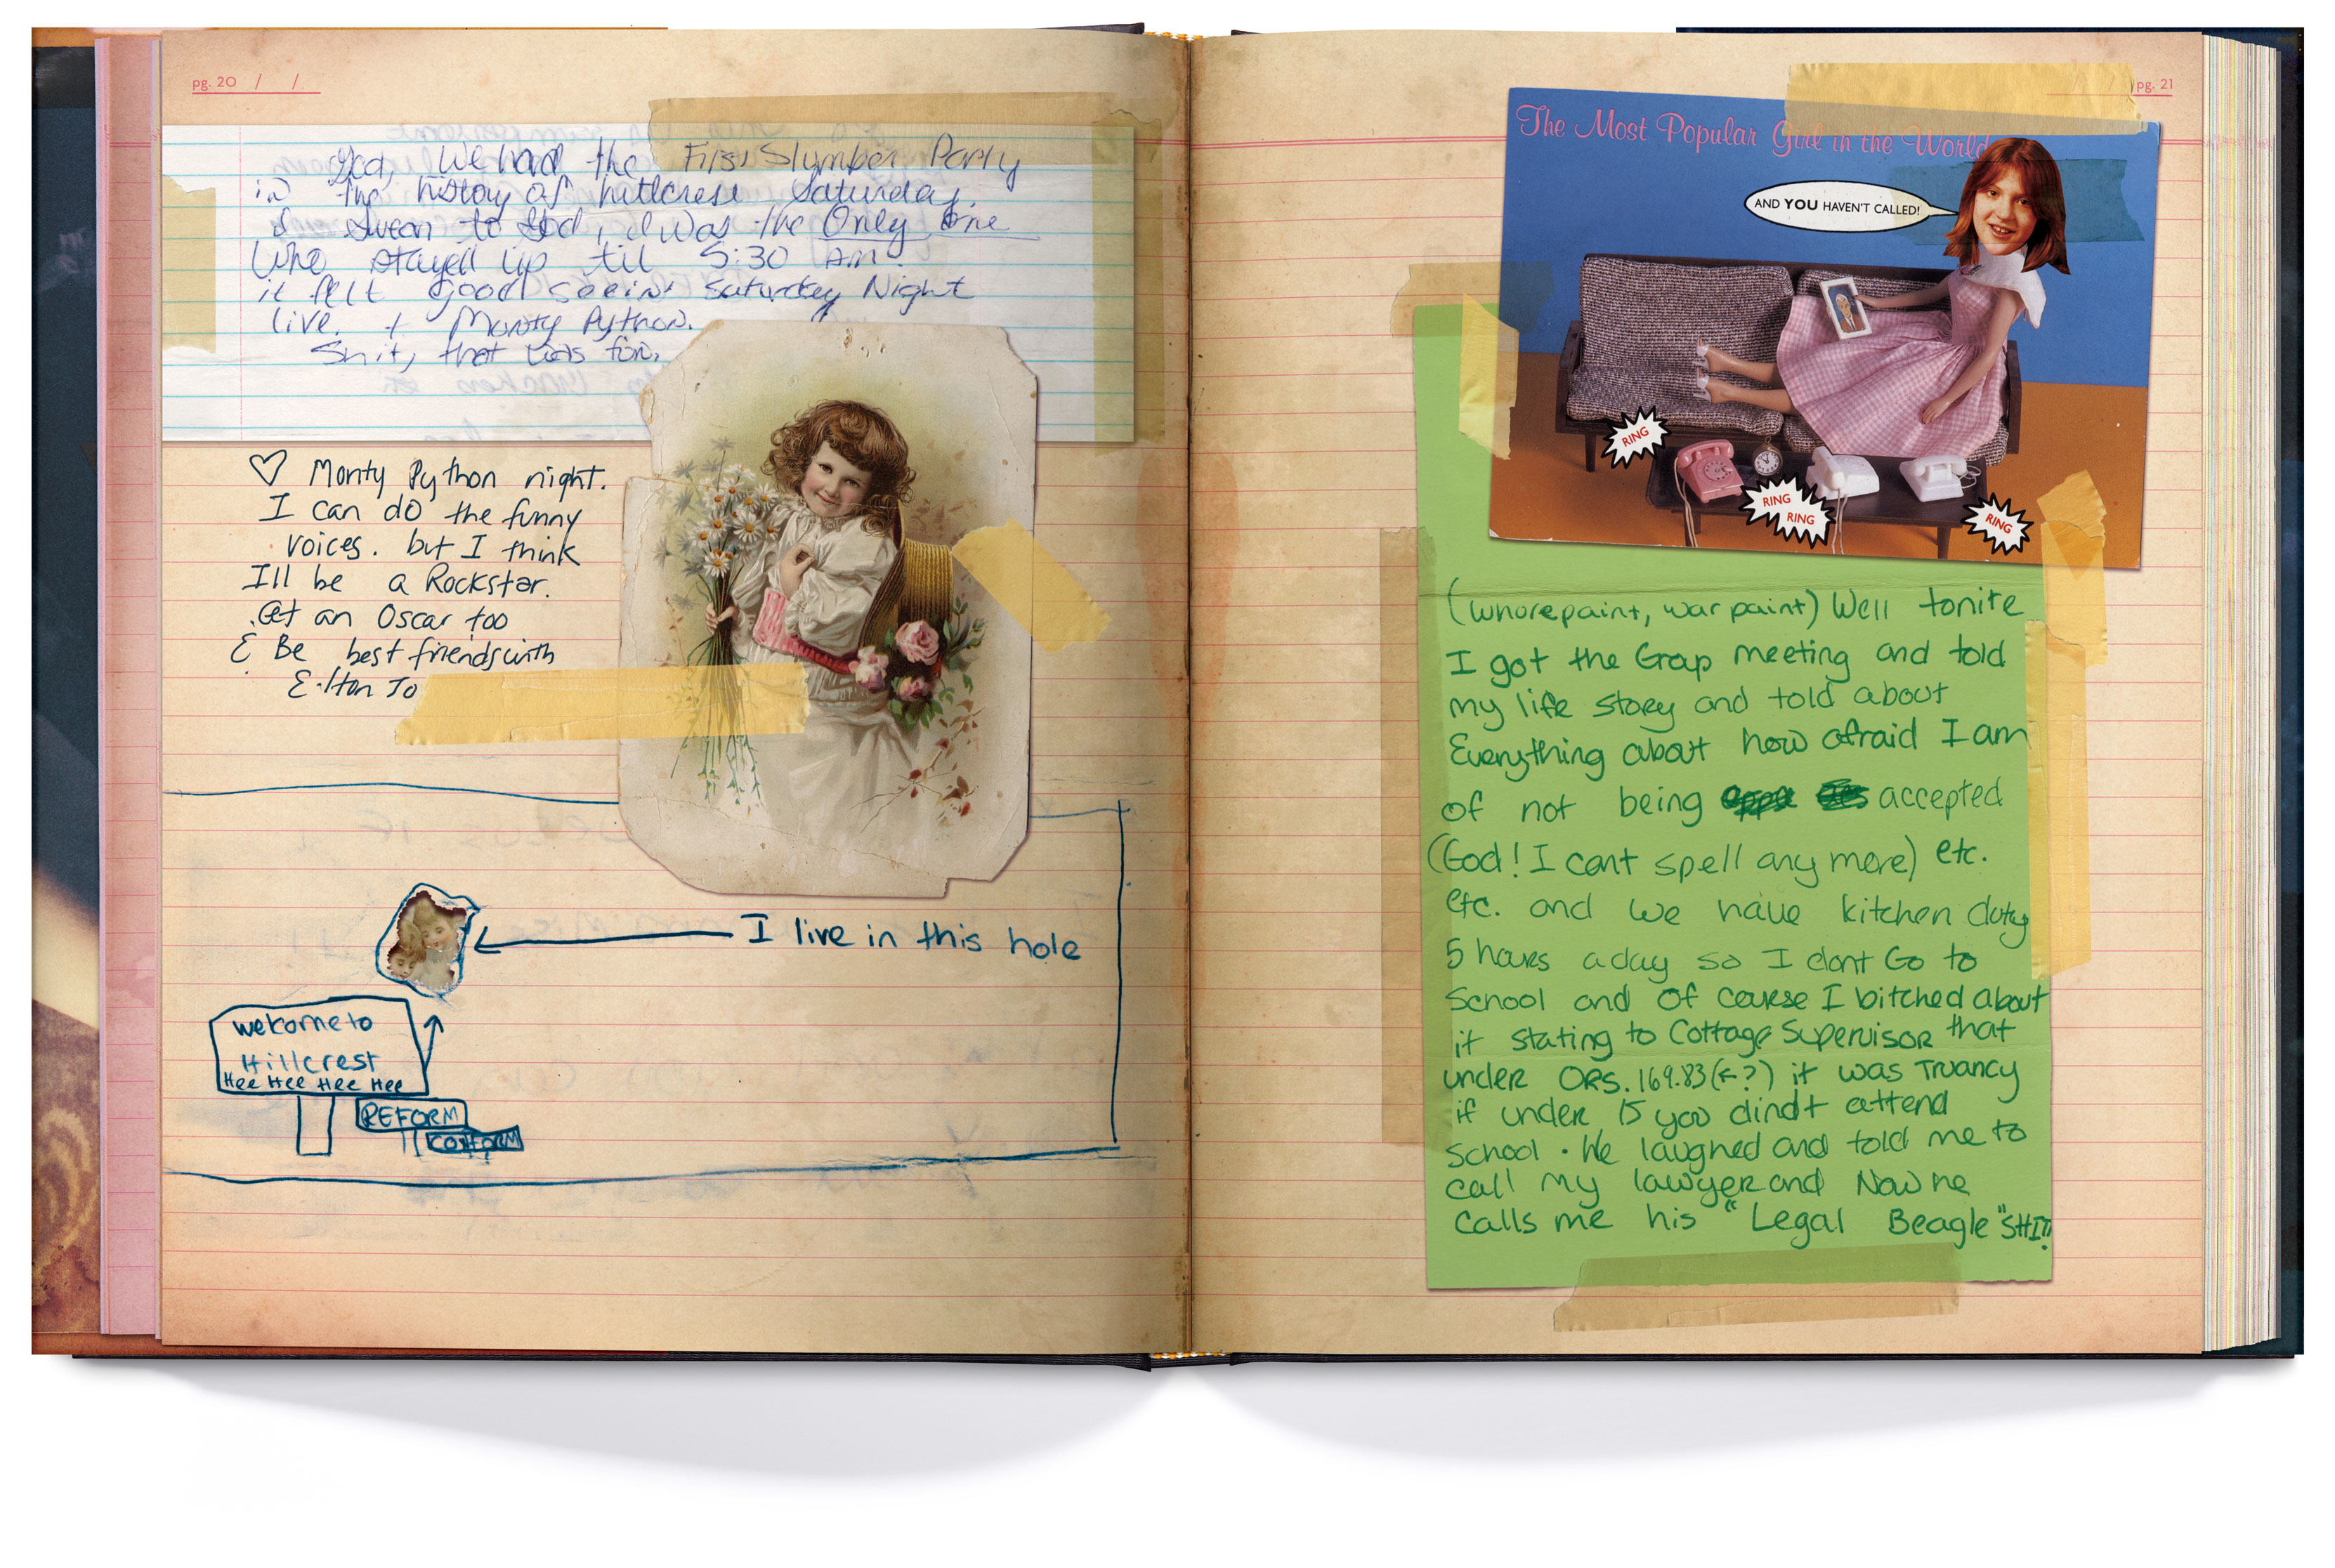 pg. 20 / /
God, we had the First Slumber Party
in the history of hillcrest Saturday.
I swear to God, I was the Only One
Who stayed up til 5:30 A.M.
it felt good seein' Saturday Night
live. + Monty Python.
Shit, that was fun.
♡ Monty Python night.
I can do the funny
voices. but I think
Ill be a Rockstar.
Get an Oscar too
& Be best friends with
Elton Jo
I live in this hole
welcome to
Hillcrest
Hee Hee Hee Hee
REFORM
CONFORM
pg. 21
The Most Popular Girl in the World
AND YOU HAVEN'T CALLED!
RING
RING
RING
RING
(whorepaint, war paint) Well tonite
I got the Grop meeting and told
my life story and told about
Everything about how afraid I am
of not being accepted
(God! I cant spell any more) etc.
etc. and we have kitchen duty
5 hours a day so I dont Go to
School and of course I bitched about
it stating to Cottage Supervisor that
under ORS. 169.83 (F?) it was Truancy
if under 15 you dindt attend
school. He laughed and told me to
call my lawyer and Now he
calls me his "Legal Beagle" SHIT!